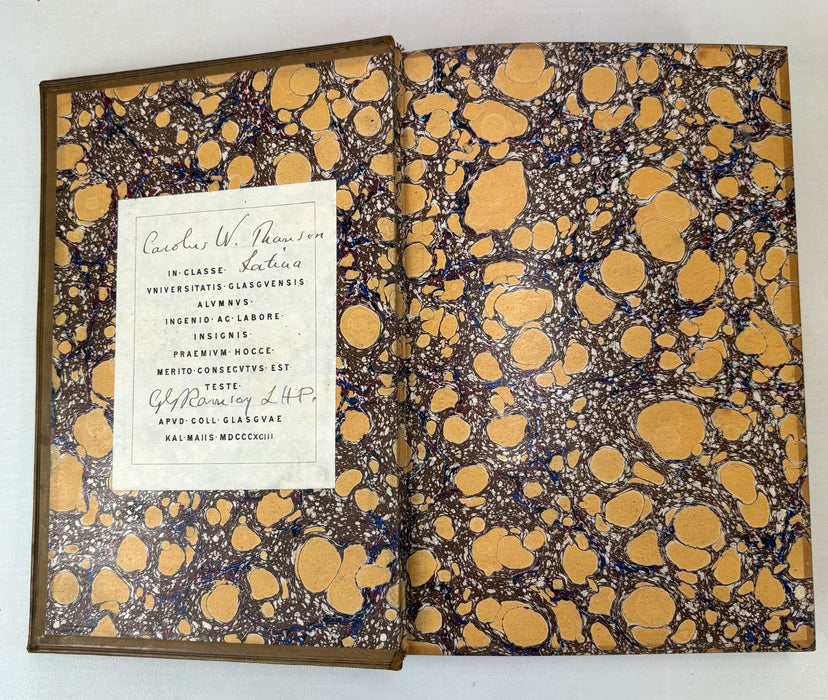 Carolus W. Thomson
IN·CLASSE· Latina
VNIVERSITATIS·GLASGVENSIS
ALVMNVS·
INGENIO·AC·LABORE·
INSIGNIS·
PRAEMIVM·HOCCE·
MERITO·CONSECVTVS·EST
TESTE·
GGRamsay L.H.P.
APVD·COLL·GLASGVAE
KAL·MAIIS·MDCCCXCIII